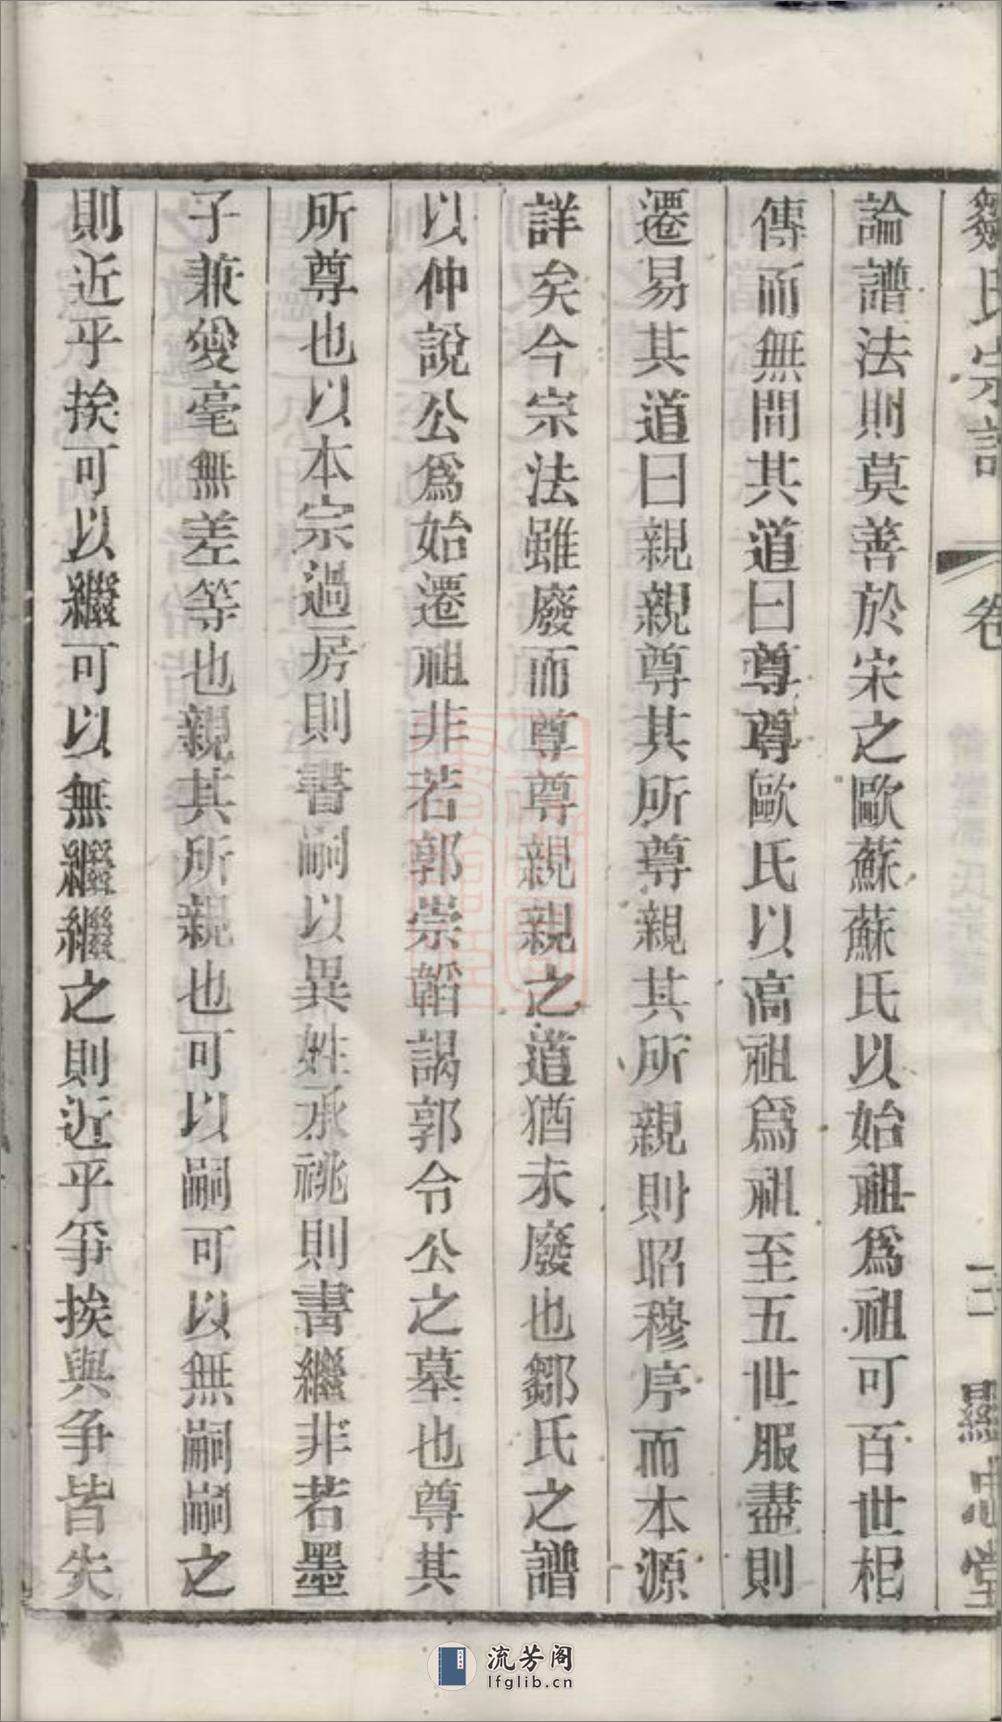 鄒氏宗譜 卷 三 顯忠堂
論譜法則莫善於宋之歐蘇蘇氏以始祖爲祖可百世相
傳而無間其道曰尊尊歐氏以高祖爲祖至五世服盡則
遷易其道曰親親尊其所尊親其所親則昭穆序而本源
詳矣今宗法雖廢而尊尊親親之道猶未廢也鄒氏之譜
以仲說公爲始遷祖非若郭崇韜謁郭令公之墓也尊其
所尊也以本宗過房則書嗣以異姓承祧則書繼非若墨
子兼愛毫無差等也親其所親也可以嗣可以無嗣嗣之
則近乎挨可以繼可以無繼繼之則近乎爭挨與争皆失
流芳阁
lfglib.cn